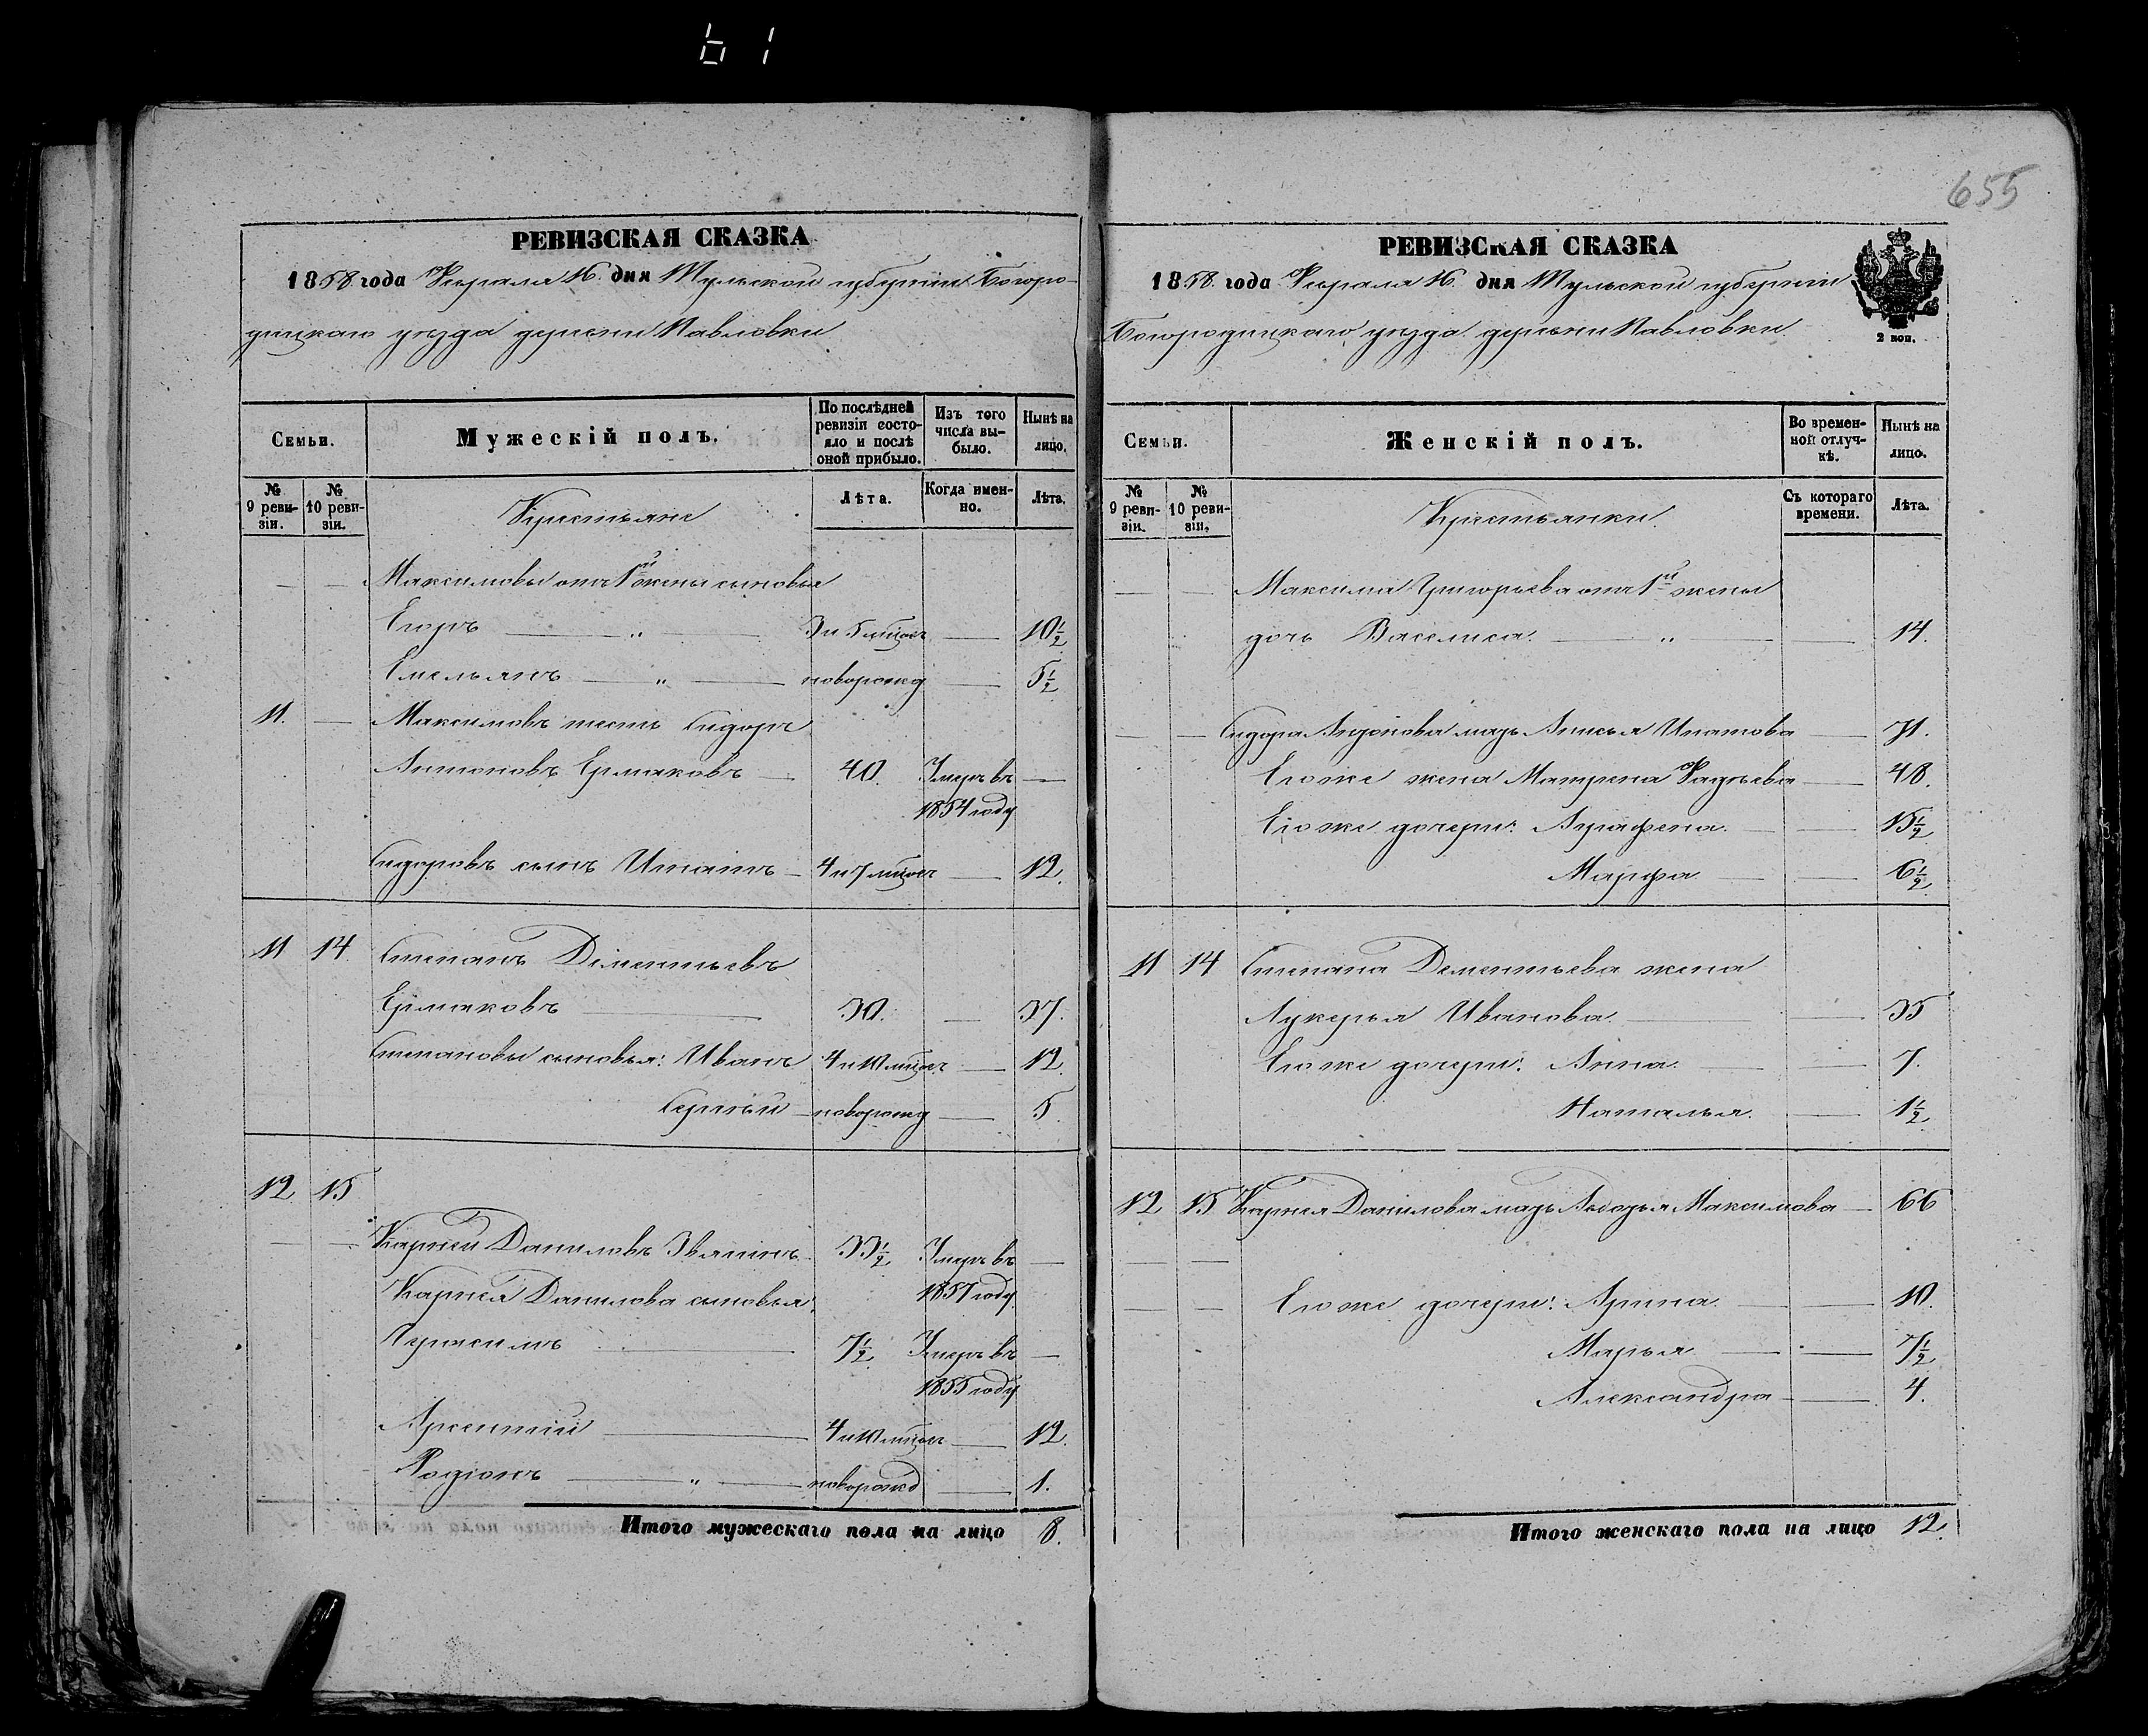 61
655
РЕВИЗСКАЯ СКАЗКА
1858 года Февраля 16 дня Тульской губернiи Богоро-
дицкаго уезда деревни Павловки
Семьи.
Мужескiй полъ.
По послѣдней ревизiи состо-яло и послѣ оной прибыло.
Изъ того числа вы-было.
Нынѣ на лицо.
№ 9 реви-зiи.
№ 10 реви-зiи.
Крестьяне
Лѣта.
Когда имен-но.
Лѣта.
— — Максимовы отъ 1й жены сыновья
Егоръ — " — 3 и 5 мѣсяц — 10½
Емельянъ — " — новорожд — 5½
11. — Максимовъ тесть Сидоръ
Антоновъ Ермаковъ — 40. Умеръ въ —
1854 году
Сидоровъ сынъ Ипатъ — 4 и 7 мѣсяц — 12.
11 14. Степанъ Дементьевъ
Ермаковъ — 30. — 37.
Степановы сыновья: Иванъ 4 и 10 мѣсяц — 12.
Сергѣй — новорожд — 5
12 15
— — Карней Даниловъ 33½ Умеръ въ —
Карнея Данилова сыновья: 1857 году.
Герасимъ — 7½ Умеръ въ —
1855 году
Арсентiй — 4 и 10 мѣсяц — 12.
Родiонъ — " — новорожд — 1.
Итого мужескаго пола на лицо 8.
РЕВИЗСКАЯ СКАЗКА
1858 года Февраля 16. дня Тульской губернiи
Богородицкаго уезда деревни Павловки
2 коп.
Семьи.
Женскiй полъ.
Во времен-ной отлуч-кѣ.
Нынѣ на лицо.
№ 9 реви-зiи.
№ 10 реви-зiи.
Крестьянки.
Съ котораго времени.
Лѣта.
— — Максима Григорьева отъ 1й жены
дочь Василиса. — " — 14.
— — Сидора Антонова мать Анисья Ипатова — 71.
Его же жена Матрена Фадѣева — 48.
Его же дочери: Аграфена. — 15½
Марфа — 6½
11 14 Степана Дементьева жена
Лукерья Иванова. — 35
Его же дочери: Анна. — 7.
Наталья. — 1½
12 15 Карнея Данилова мать Авдотья Максимова — 66
— —
— — Его же дочери: Арина. — 10.
Марья — 7½
Александра — 4.
Итого женскаго пола на лицо 12.